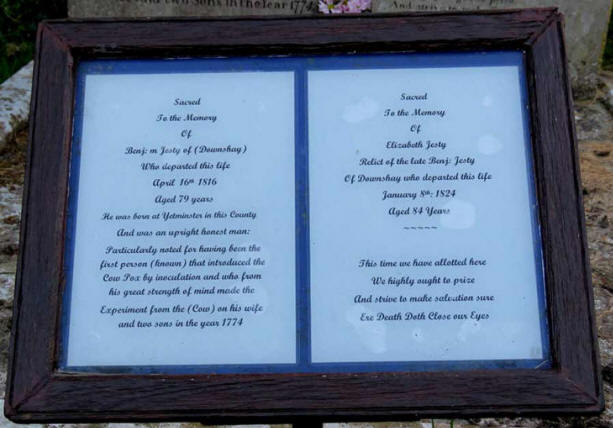 and two Sons in the Year 1774
And strive to
Sacred
To the Memory
Of
Benj: m Jesty of (Downshay)
Who departed this life
April 16th 1816
Aged 79 years
He was born at Yetminster in this County
And was an upright honest man:
Particularly noted for having been the
first person (known) that introduced the
Cow Pox by inoculation and who from
his great strength of mind made the
Experiment from the (Cow) on his wife
and two sons in the year 1774
Sacred
To the Memory
Of
Elizabeth Jesty
Relict of the late Benj: Jesty
Of Downshay who departed this life
January 8th: 1824
Aged 84 Years
~~~~~
This time we have allotted here
We highly ought to prize
And strive to make salvation sure
Ere Death Doth Close our Eyes